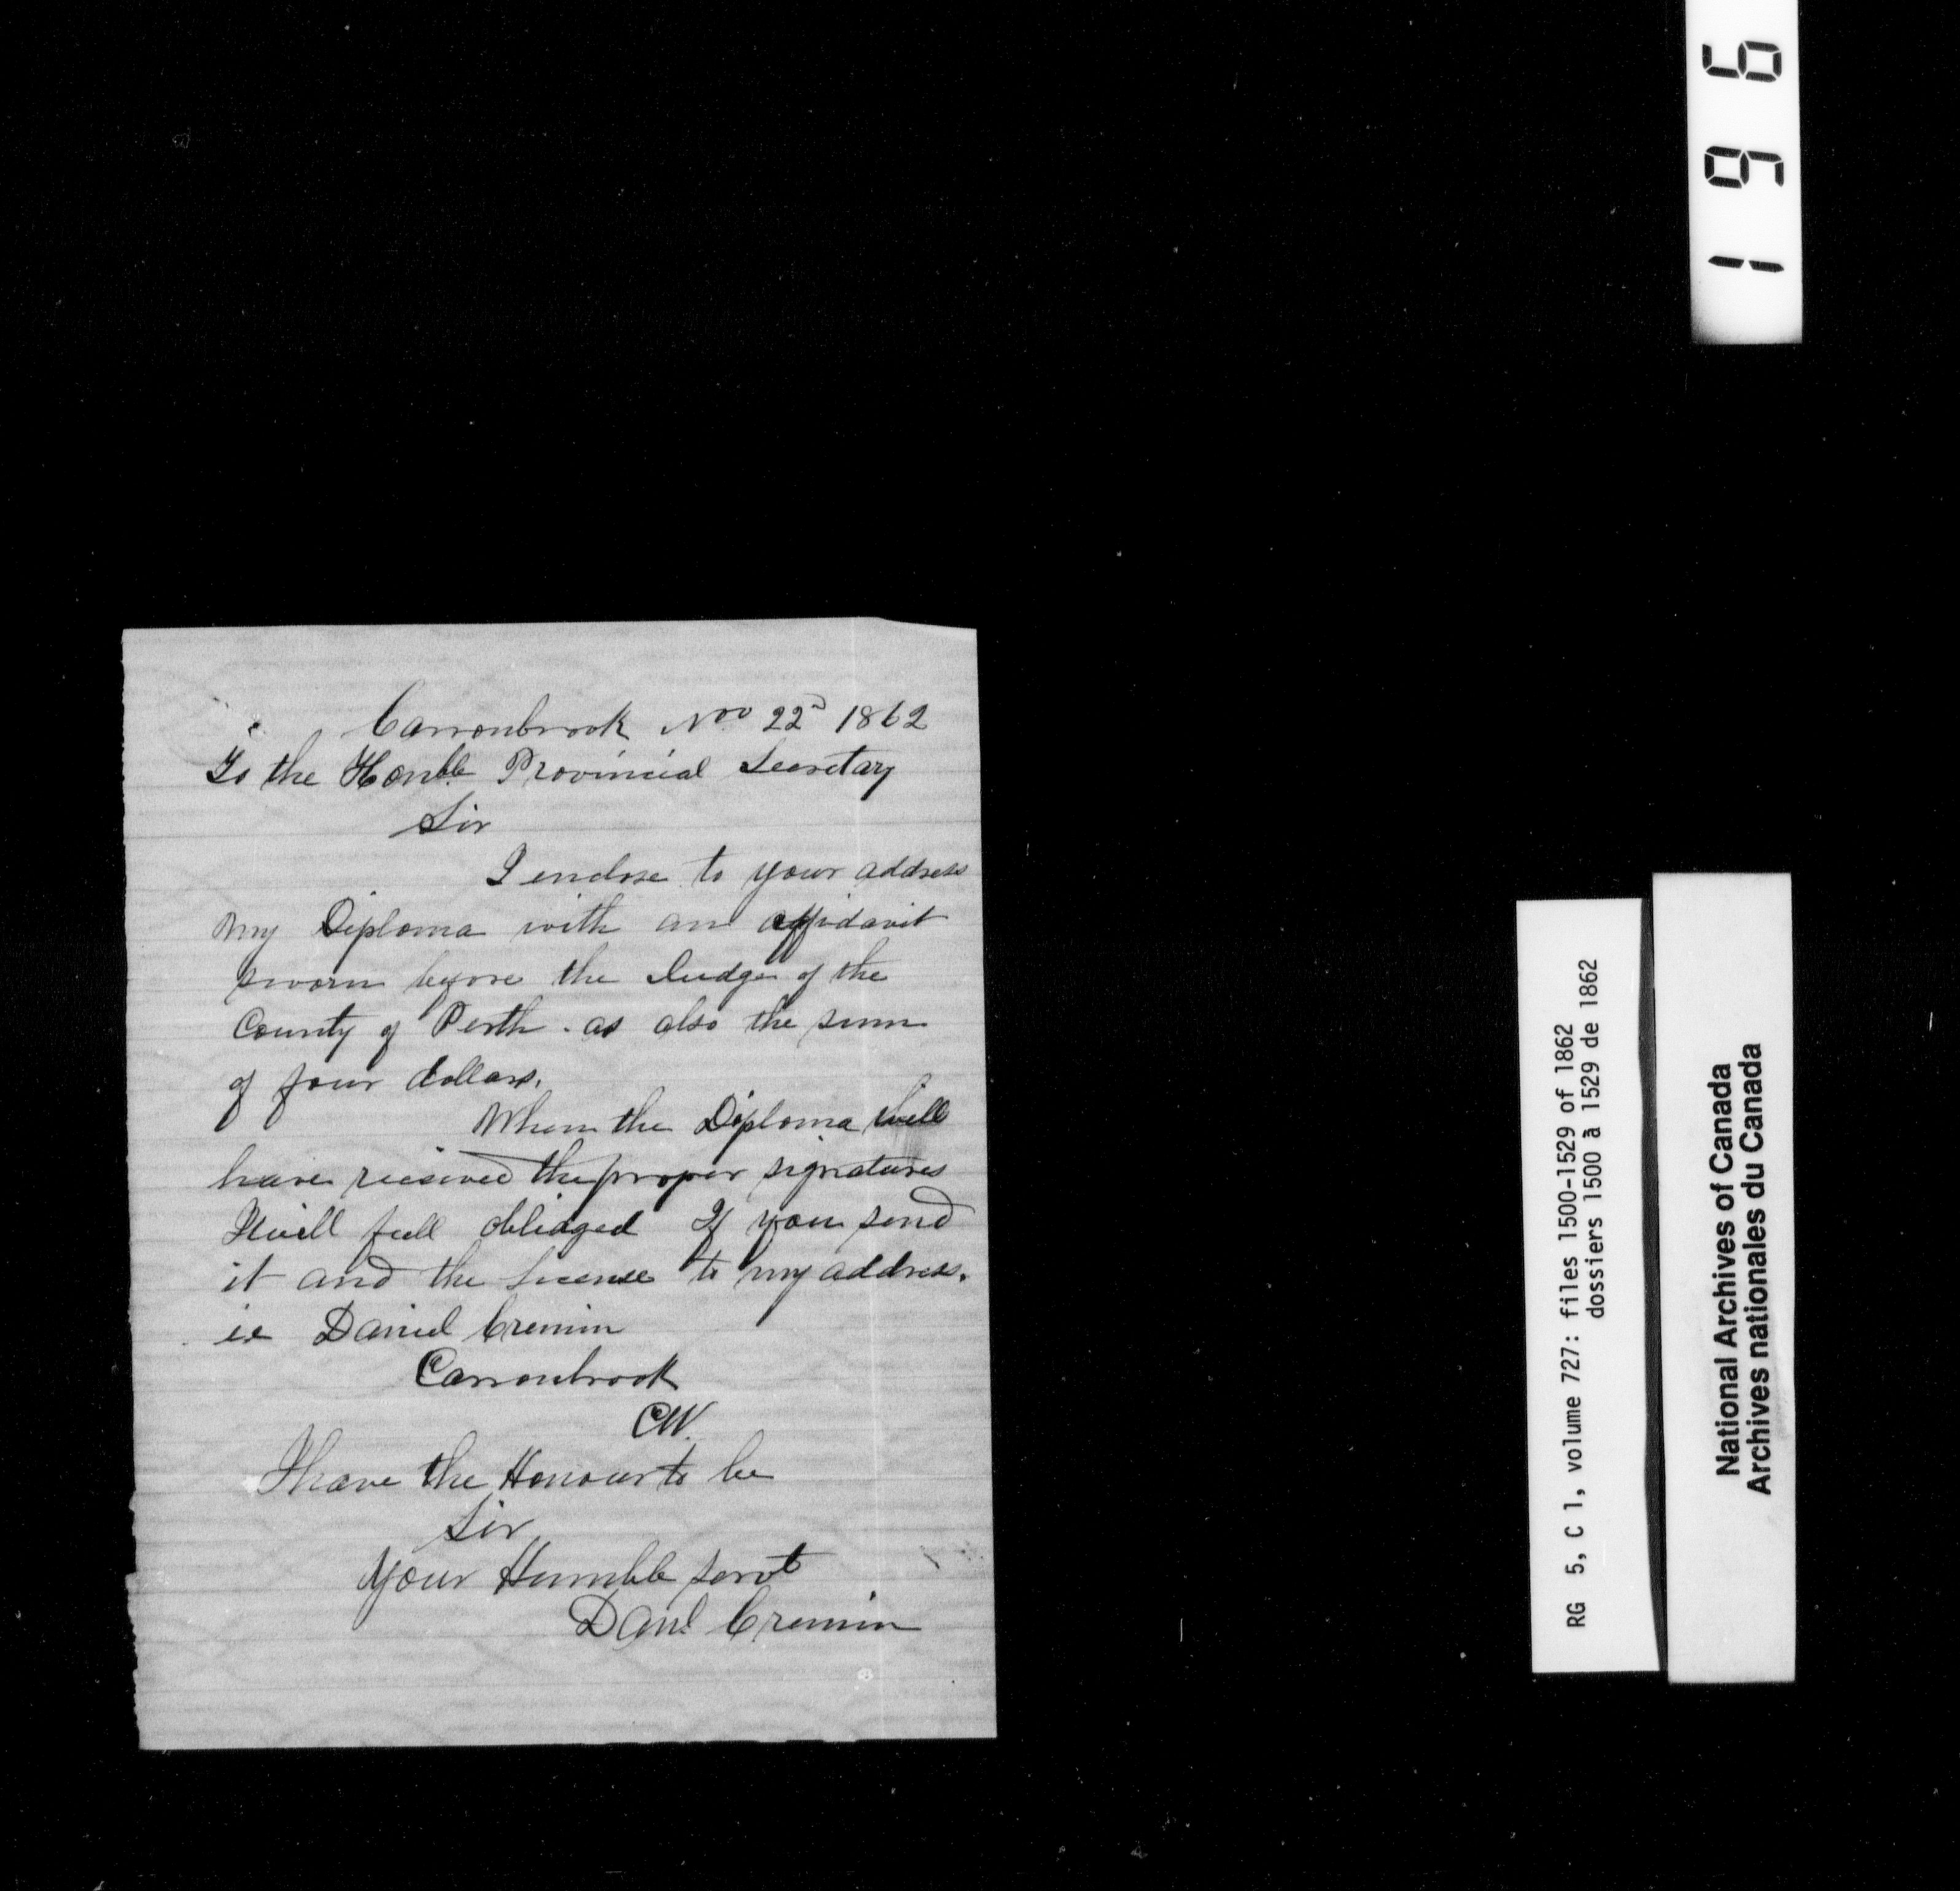 Carronbrook Nov 22d 1862
To the Honble Provincial Secretary
Sir
I enclose to your address
my Diploma with an affidavit
sworn before the Judge of the
County of Perth - as also the sum
of four dollars.
When the Diploma will
have received the proper signatures
I will feel obliged If you send
it and the License to my address.
ie Daniel Cremin
Carronbrook
CW.
I have the Honour to be
Sir
your Humble servt
Danl Cremin
196
RG 5, C 1, volume 727: files 1500-1529 of 1862
dossiers 1500 à 1529 de 1862
National Archives of Canada
Archives nationales du Canada